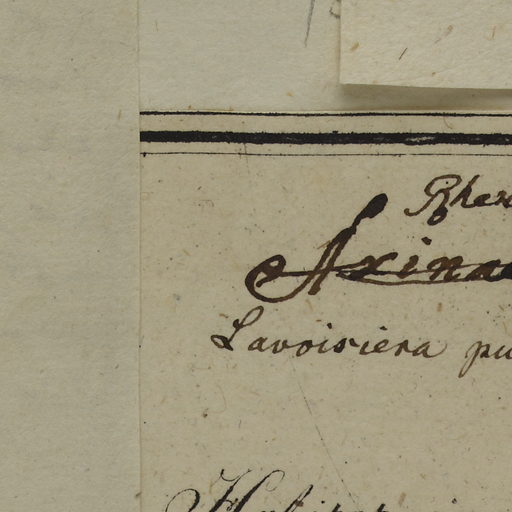 Rhex
Axinae
Lavoisiera pu
Habitat